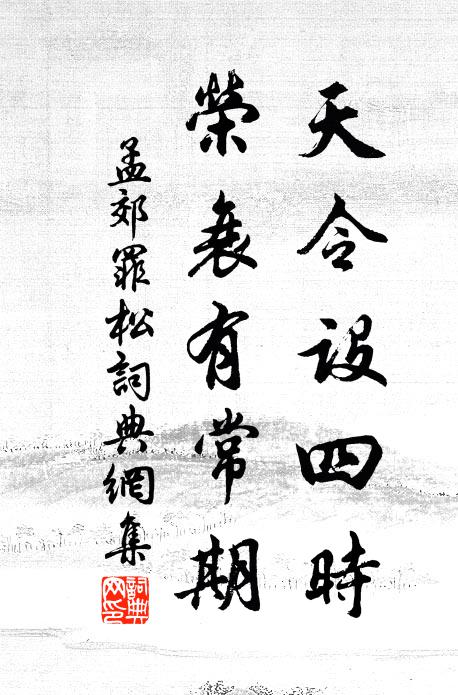 天令設四時
榮衰有常期
孟郊罪松詞典網集
詞典網印